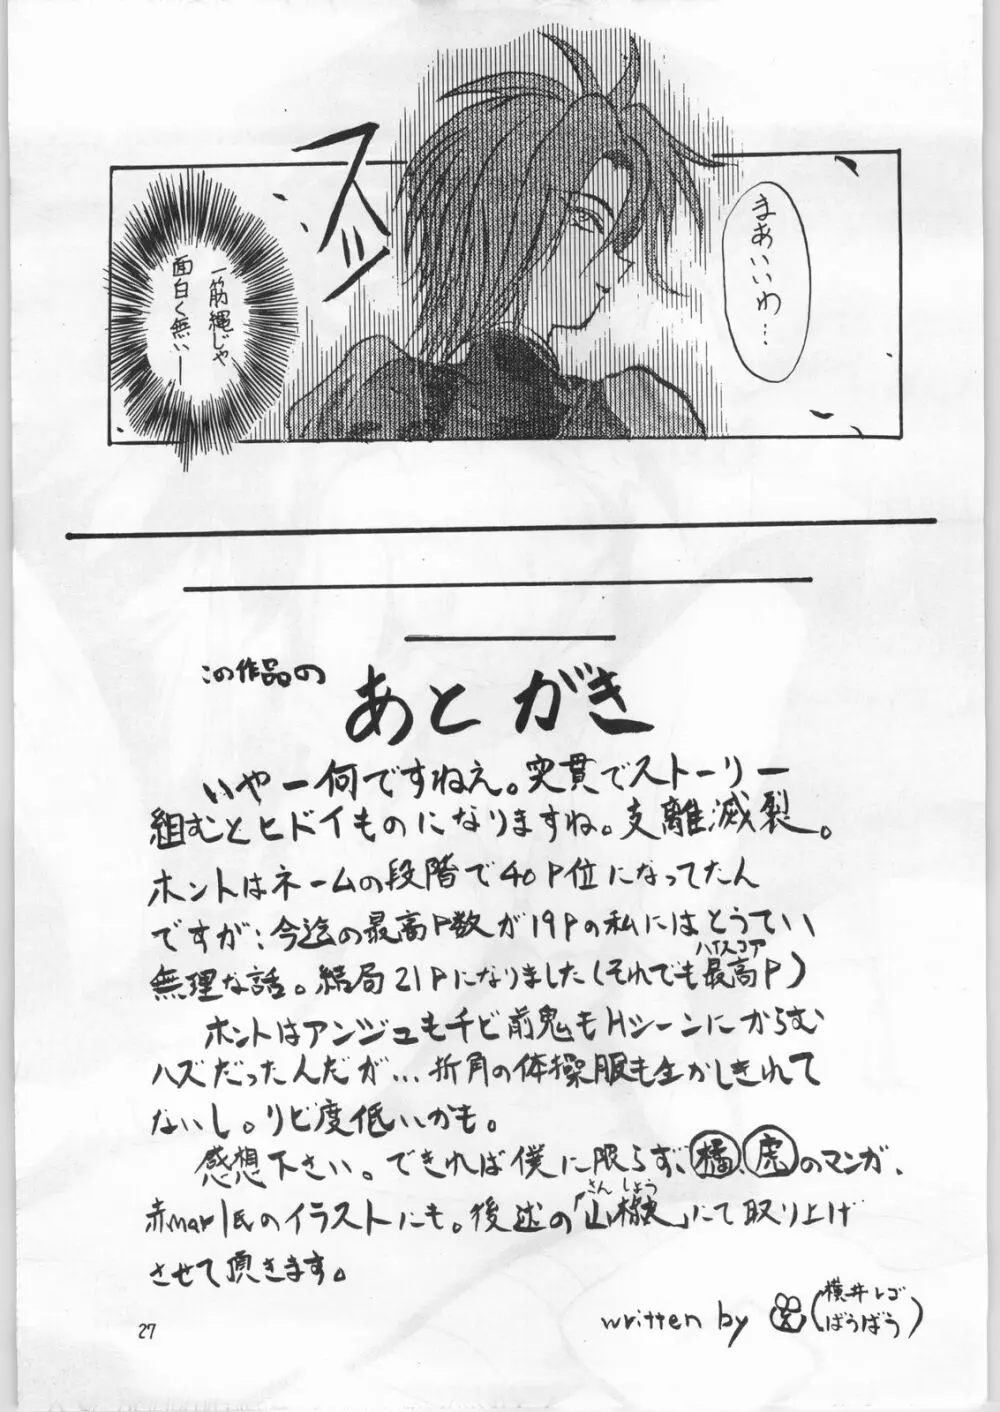 まあいいわ…
スッ
一筋縄じゃ
面白く無い―
この作品の
あとがき
いやー何ですねえ。突貫でストーリー
組むとヒドイものになりますね。支離滅裂。
ホントはネームの段階で40P位になってたん
ですが、今迄の最高P数が19Pの私にはとうてい
ハイスコア
無理な話。結局21Pになりました(それでも最高P)
ホントはアンジュもチビ前鬼もHシーンにからむ
ハズだったんだが…折角の体操服も生かしきれて
ないし。リビ度低いかも。
感想下さい。できれば僕に限らず、橘、虎のマンガ、
さんしょう
赤mar氏のイラストにも。後述の「山椒」にて取り上げ
させて頂きます。
written by (横井レゴ
ばうばう)
27